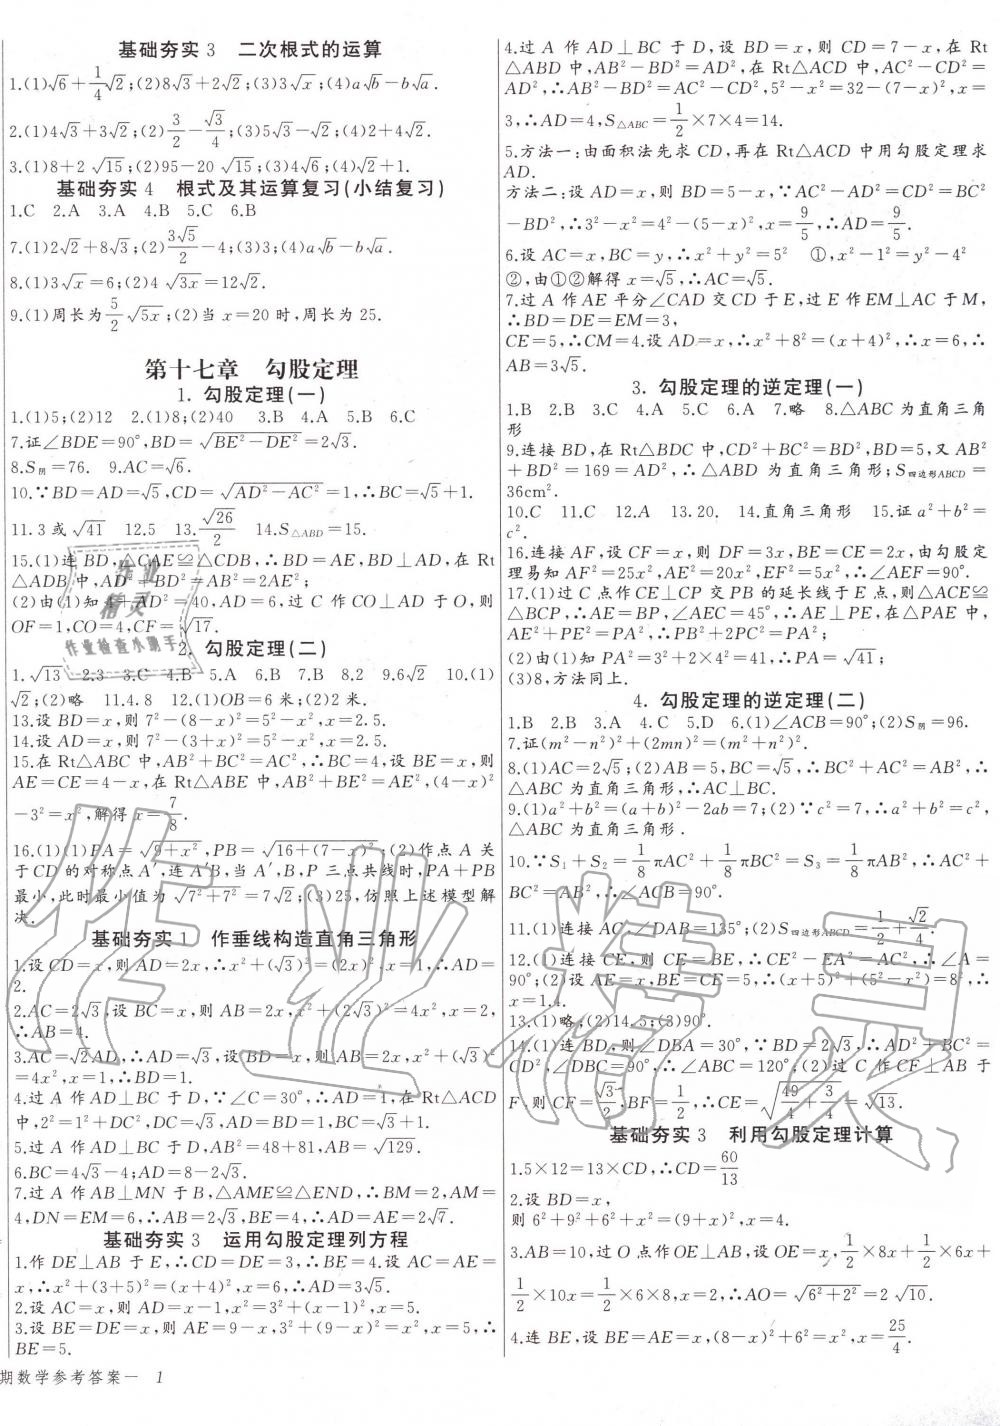 基础夯实3　二次根式的运算
1.(1)√6+1/4√2;(2)8√3+2√2;(3)3√x;(4)a√b-b√a.
2.(1)4√3+3√2;(2)3/2-√3/4;(3)5√3-√2;(4)2+4√2.
3.(1)8+2√15;(2)95-20√15;(3)4√6;(4)√2+1.
基础夯实4　根式及其运算复习(小结复习)
1.C　2.A　3.A　4.B　5.C　6.B
7.(1)2√2+8√3;(2)3√5/2-4;(3)3;(4)a√b-b√a.
8.(1)3√x=6;(2)4√3x=12√2.
9.(1)周长为5/2√5x;(2)当x=20时,周长为25.
第十七章　勾股定理
1. 勾股定理(一)
1.(1)5;(2)12　2.(1)8;(2)40　3.B　4.A　5.B　6.C
7.证∠BDE=90°,BD=√BE²-DE²=2√3.
8.S阴=76.　9.AC=√6.
10.∵BD=AD=√5,CD=√AD²-AC²=1,∴BC=√5+1.
11.3或√41　12.5　13.√26/2　14.S△ABD=15.
15.(1)连BD,△CAE≌△CDB,∴BD=AE,BD⊥AD,在Rt
△ADB中,AD²+BD²=AB²=2AE²;
(2)由(1)知 +AD²=40,AD=6,过C作CO⊥AD于O,则
OF=1,CO=4,CF=√17.
2. 勾股定理(二)
1.√13　2.3　3.C　4.B　5.A　6.B　7.B　8.2　9.6　10.(1)
√2;(2)略　11.4.8　12.(1)OB=6米;(2)2米.
13.设BD=x,则7²-(8-x)²=5²-x²,x=2.5.
14.设AD=x,则7²-(3+x)²=5²-x²,x=2.5.
15.在Rt△ABC中,AB²+BC²=AC²,∴BC=4,设BE=x,则
AE=CE=4-x,在Rt△ABE中,AB²+BE²=AE²,(4-x)²
-3²=x²,解得x=7/8.
16.(1)(1)PA=√9+x²,PB=√16+(7-x)²;(2)作点A关
于CD的对称点A′,连A′B,当A′,B,P三点共线时,PA+PB
最小,此时最小值为√7²+7²=7√2;(3)25,仿照上述模型解
决.
基础夯实1　作垂线构造直角三角形
1.设CD=x,则AD=2x,∴x²+(√3)²=(2x)²,x=1,∴AD=
2.
2.AC=2√3,设BC=x,则AB=2x,x²+(2√3)²=4x²,x=2,
∴AB=4.
3.AC=√2AD,∴AD=√3,设BD=x,则AB=2x,x²+(√3)²
=4x²,x=1,∴BD=1.
4.过A作AD⊥BC于D,∵∠C=30°,∴AD=1,在Rt△ACD
中,2²=1²+DC²,DC=√3,AD=BD=1,BC=√3+1.
5.过A作AD⊥BC于D,AB²=48+81,AB=√129.
6.BC=4√3-4;AD=8-2√3.
7.过A作AB⊥MN于B,△AME≌△END,∴BM=2,AM=
4,DN=EM=6,∴AB=2√3,BE=4,∴AD=AE=2√7.
基础夯实3　运用勾股定理列方程
1.作DE⊥AB于E,∴CD=DE=3,∴BE=4.设AC=AE=
x,∴x²+(3+5)²=(x+4)²,x=6,∴AD=3√5.
2.设AC=x,则AD=x-1,x²=3²+(x-1)²,x=5.
3.设BE=DE=x,则AE=9-x,3²+(9-x)²=x²,x=5,∴
BE=5.
4.过A作AD⊥BC于D,设BD=x,则CD=7-x,在Rt
△ABD中,AB²-BD²=AD²,在Rt△ACD中,AC²-CD²=
AD²,∴AB²-BD²=AC²-CD²,5²-x²=32-(7-x)²,x=
3,∴AD=4,S△ABC=1/2×7×4=14.
5.方法一:由面积法先求CD,再在Rt△ACD中用勾股定理求
AD.
方法二:设AD=x,则BD=5-x,∵AC²-AD²=CD²=BC²
-BD²,∴3²-x²=4²-(5-x)²,x=9/5,∴AD=9/5.
6.设AC=x,BC=y,∴x²+y²=5²　①,x²-1²=y²-4²
②,由①②解得x=√5,∴AC=√5.
7.过A作AE平分∠CAD交CD于E,过E作EM⊥AC于M,
∴BD=DE=EM=3,
CE=5,∴CM=4.设AD=x,∴x²+8²=(x+4)²,∴x=6,∴
AB=3√5.
3. 勾股定理的逆定理(一)
1.B　2.B　3.C　4.A　5.C　6.A　7.略　8.△ABC为直角三角
形
9.连接BD,在Rt△BDC中,CD²+BC²=BD²,BD=5,又AB²
+BD²=169=AD²,∴△ABD为直角三角形;S四边形ABCD=
36cm².
10.C　11.C　12.A　13.20.　14.直角三角形　15.证a²+b²=
c².
16.连接AF,设CF=x,则DF=3x,BE=CE=2x,由勾股定
理易知AF²=25x²,AE²=20x²,EF²=5x²,∴∠AEF=90°.
17.(1)过C点作CE⊥CP交PB的延长线于E点,则△ACE≌
△BCP,∴AE=BP,∠AEC=45°,∴AE⊥PE,在△PAE中,
AE²+PE²=PA²,∴PB²+2PC²=PA²;
(2)由(1)知PA²=3²+2×4²=41,∴PA=√41;
(3)8,方法同上.
4. 勾股定理的逆定理(二)
1.B　2.B　3.A　4.C　5.D　6.(1)∠ACB=90°;(2)S阴=96.
7.证(m²-n²)²+(2mn)²=(m²+n²)².
8.(1)AC=2√5;(2)AB=5,BC=√5,∴BC²+AC²=AB²,∴
△ABC为直角三角形,∴AC⊥BC.
9.(1)a²+b²=(a+b)²-2ab=7;(2)∵c²=7,∴a²+b²=c²,
△ABC为直角三角形.
10.∵S₁+S₂=1/8πAC²+1/8πBC²=S₃=1/8πAB²,∴AC²+
BC²=AB²,∴∠ACB=90°.
11.(1)连接AC,∠DAB=135°;(2)S四边形ABCD=1/2+√2/4.
12.(1)连接CE,则CE=BE,∴CE²-EA²=AC²,∴∠A=
90°;(2)设AE=x,BE=CE=5,∴(x+5)²+(5²-x²)=8²,∴
x=1.4.
13.(1)略;(2)14.5;(3)90°.
14.(1)连BD,则∠DBA=30°,∵BD=2√3,∴AD²+BC²=
CD²,∠DBC=90°,∴∠ABC=120°;(2)过C作CF⊥AB于
F,则CF=√3/2,BF=1/2,∴CE=√(49/4+3/4)=√13.
基础夯实3　利用勾股定理计算
1.5×12=13×CD,∴CD=60/13
2.设BD=x,
则6²+9²+6²+x²=(9+x)²,x=4.
3.AB=10,过O点作OE⊥AB,设OE=x,1/2×8x+1/2×6x+
1/2×10x=1/2×6×8,x=2,∴AO=√6²+2²=2√10.
4.连BE,设BE=AE=x,(8-x)²+6²=x²,x=25/4.
期数学参考答案一　1
作业精灵
作业检查小助手
作业精灵